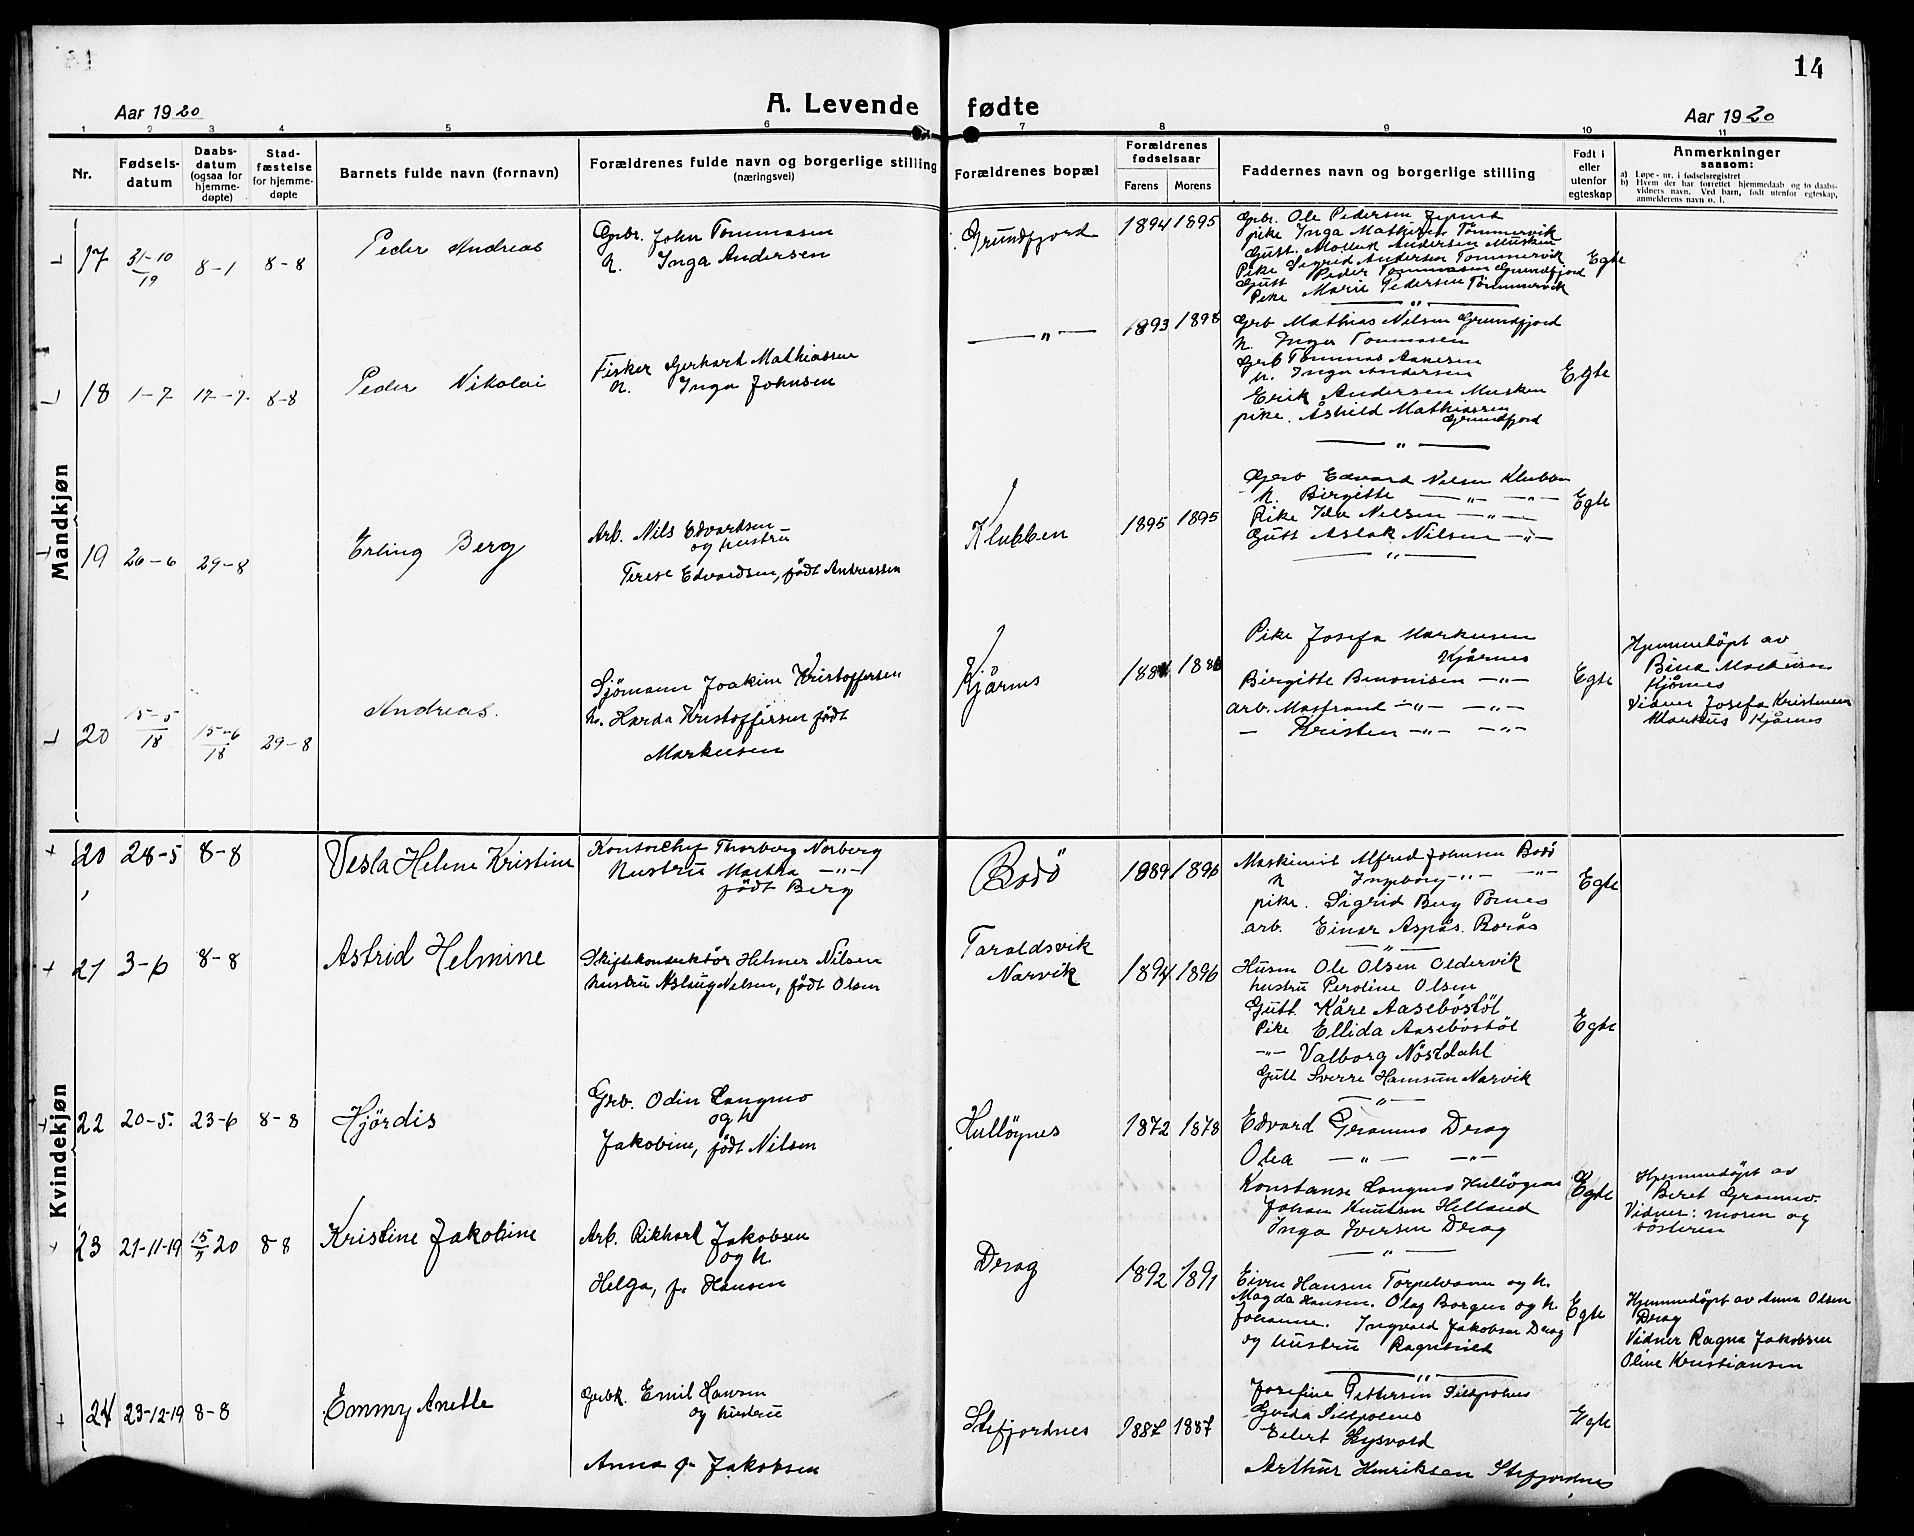 14
Aar 1920
A. Levende fødte
Aar 1920
1 2 3 4 5 6 7 8 9 10 11
Nr.
Fødsels-
datum
Daabs-
datum
(ogsaa for
hjemme-
døpte)
Stad-
fæstelse
for hjemme-
døpte
Barnets fulde navn (fornavn)
Forældrenes fulde navn og borgerlige stilling
(næringsvei)
Forældrenes bopæl
Forældrenes
fødselsaar
Farens Morens
Faddernes navn og borgerlige stilling
Født i
eller
utenfor
egteskap
Anmerkninger
saasom:
a) Løpe-nr. i fødselsregistret
b) Hvem der har forrettet hjemmedaab og to daabs-
vidners navn. Ved barn, født utenfor egteskap,
anmelderens navn o. l.
Mandkjøn
17 31-10/19 8-1 8-8 Peder Andreas
Gbr. John Tommasen
h. Inga Andersen
Grundfjord 1894 1895
Gbr. Ole Pedersen
pike Inga Mathisen Tømmervik
Gutt. Andersen Musken
Pike Sigrid Andersen Tømmervik
Gutt Peder Tommasen Grundfjord
Pike Marie Pedersen Tømmervik
Egte
18 1-7 17-7 8-8 Peder Nikolai
Fisker Gerhart Mathiassen
h. Inga Johnsen
—„— 1893 1898
Grb Mathias Nilsen Grundfjord
h. Inger Tommasen
Grb Tommas Aanesen
h. Inga Andersen
Erik Andersen Musken
pike. Åshild Mathiassen
Grundfjord
Egte
19 26-6 29-8 Erling Berg
Arb. Nils Edvardsen
og hustru
Terese Edvardsen, født Andreassen
Klubben 1895 1895
Gerb Edvard Nilsen Klubben
h. Birgitte —„— —„—
Pike Ida Nilsen —„—
Gutt Aslak Nilsen —„—
Egte
20 15-5/18 15-6/18 29-8 Andreas.
Sjømann Joakim Kristoffersen
h. Harda Kristoffersen født
Markusen
Kjårnes 1886
Pike Josefa Markusen
Kjårnes
Birgitte Benonisen —„—
arb. Mastrand —„— —„—
— Kristen —„— —„—
Egte
Hjemmedøpt av
Bina Markusen
Kjårnes
Vidner Josefa Kristensen
Markus Kjårnes
Kvindekjøn
20 28-5 8-8 Vesla Helene Kristine
Kontorchef Thorberg Norberg
Hustru Martha —„—
født Berg
Bodø 1889 1896
Maskinist Alfred Johnsen Bodø
h Ingeborg —„— —„—
pike. Sigrid Berg Tørnes
arb. Einar Aspås. Borås
Egte
21 3-6 8-8 Astrid Helmine
Skiftekonduktør Helmer Nilsen
hustru Aslaug Nilsen, født Olsen
Taraldsvik
Narvik 1894 1896
Husm Ole Olsen Oldervik
hustru Peroline Olsen
Gutt Kåre Aasebøstøl
Pike Ellida Aasebøstøl
—„— Valborg Nøstdahl
Gutt Sverre Hamsun Narvik
Egte
22 20-5. 23-6 8-8 Hjördis
Grb. Odin Langmo
og h
Jakobine, født Nilsen
Hulløynes 1872 1878
Edvard Gramno Drag
Olea —„— —„—
Konstanse Langmo Hulløynes
Johan Knutsen Helland
Inga Iversen Drag
Egte
Hjemmedøpt av
Beret Gramno.
Vidner: moren og
søsteren
23 21-11-19 15/7 20 8-8 Kristine Jakobine
Arb. Rikhart Jakobsen
og h.
Helga, f. Hansen
Drag 1892 1891
Eivin Hansen og h.
Magda Hansen. Olaf Borgen og h.
Johanne. Ingvald Jakobsen Drag
og hustru Ragnhild
Egte
Hjemmedøpt av Anna Olsen
Drag
Vidner Ragna Jakobsen
Oline Kristiansen
24 23-12-19 8-8 Emmy Anette
Gbrk. Emil Hansen
og hustru
Anna f. Jakobsen
Stefjordnes 1887 1887
Josefine Pettersen Sildpolnes
Sildpolnes
Eilert Hysvold
Arthur Henriksen Stefjordnes
Egte